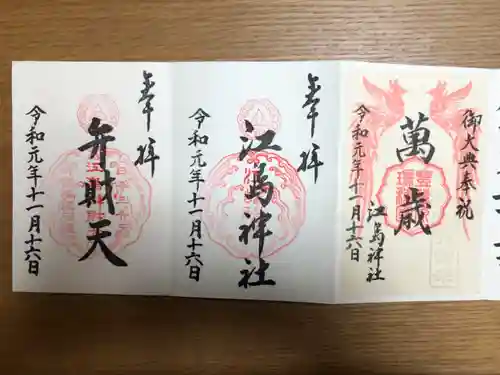 御大典奉祝
萬歳
江島神社
令和元年十一月十六日
奉拝
江島神社
令和元年十一月十六日
奉拝
弁財天
令和元年十一月十六日